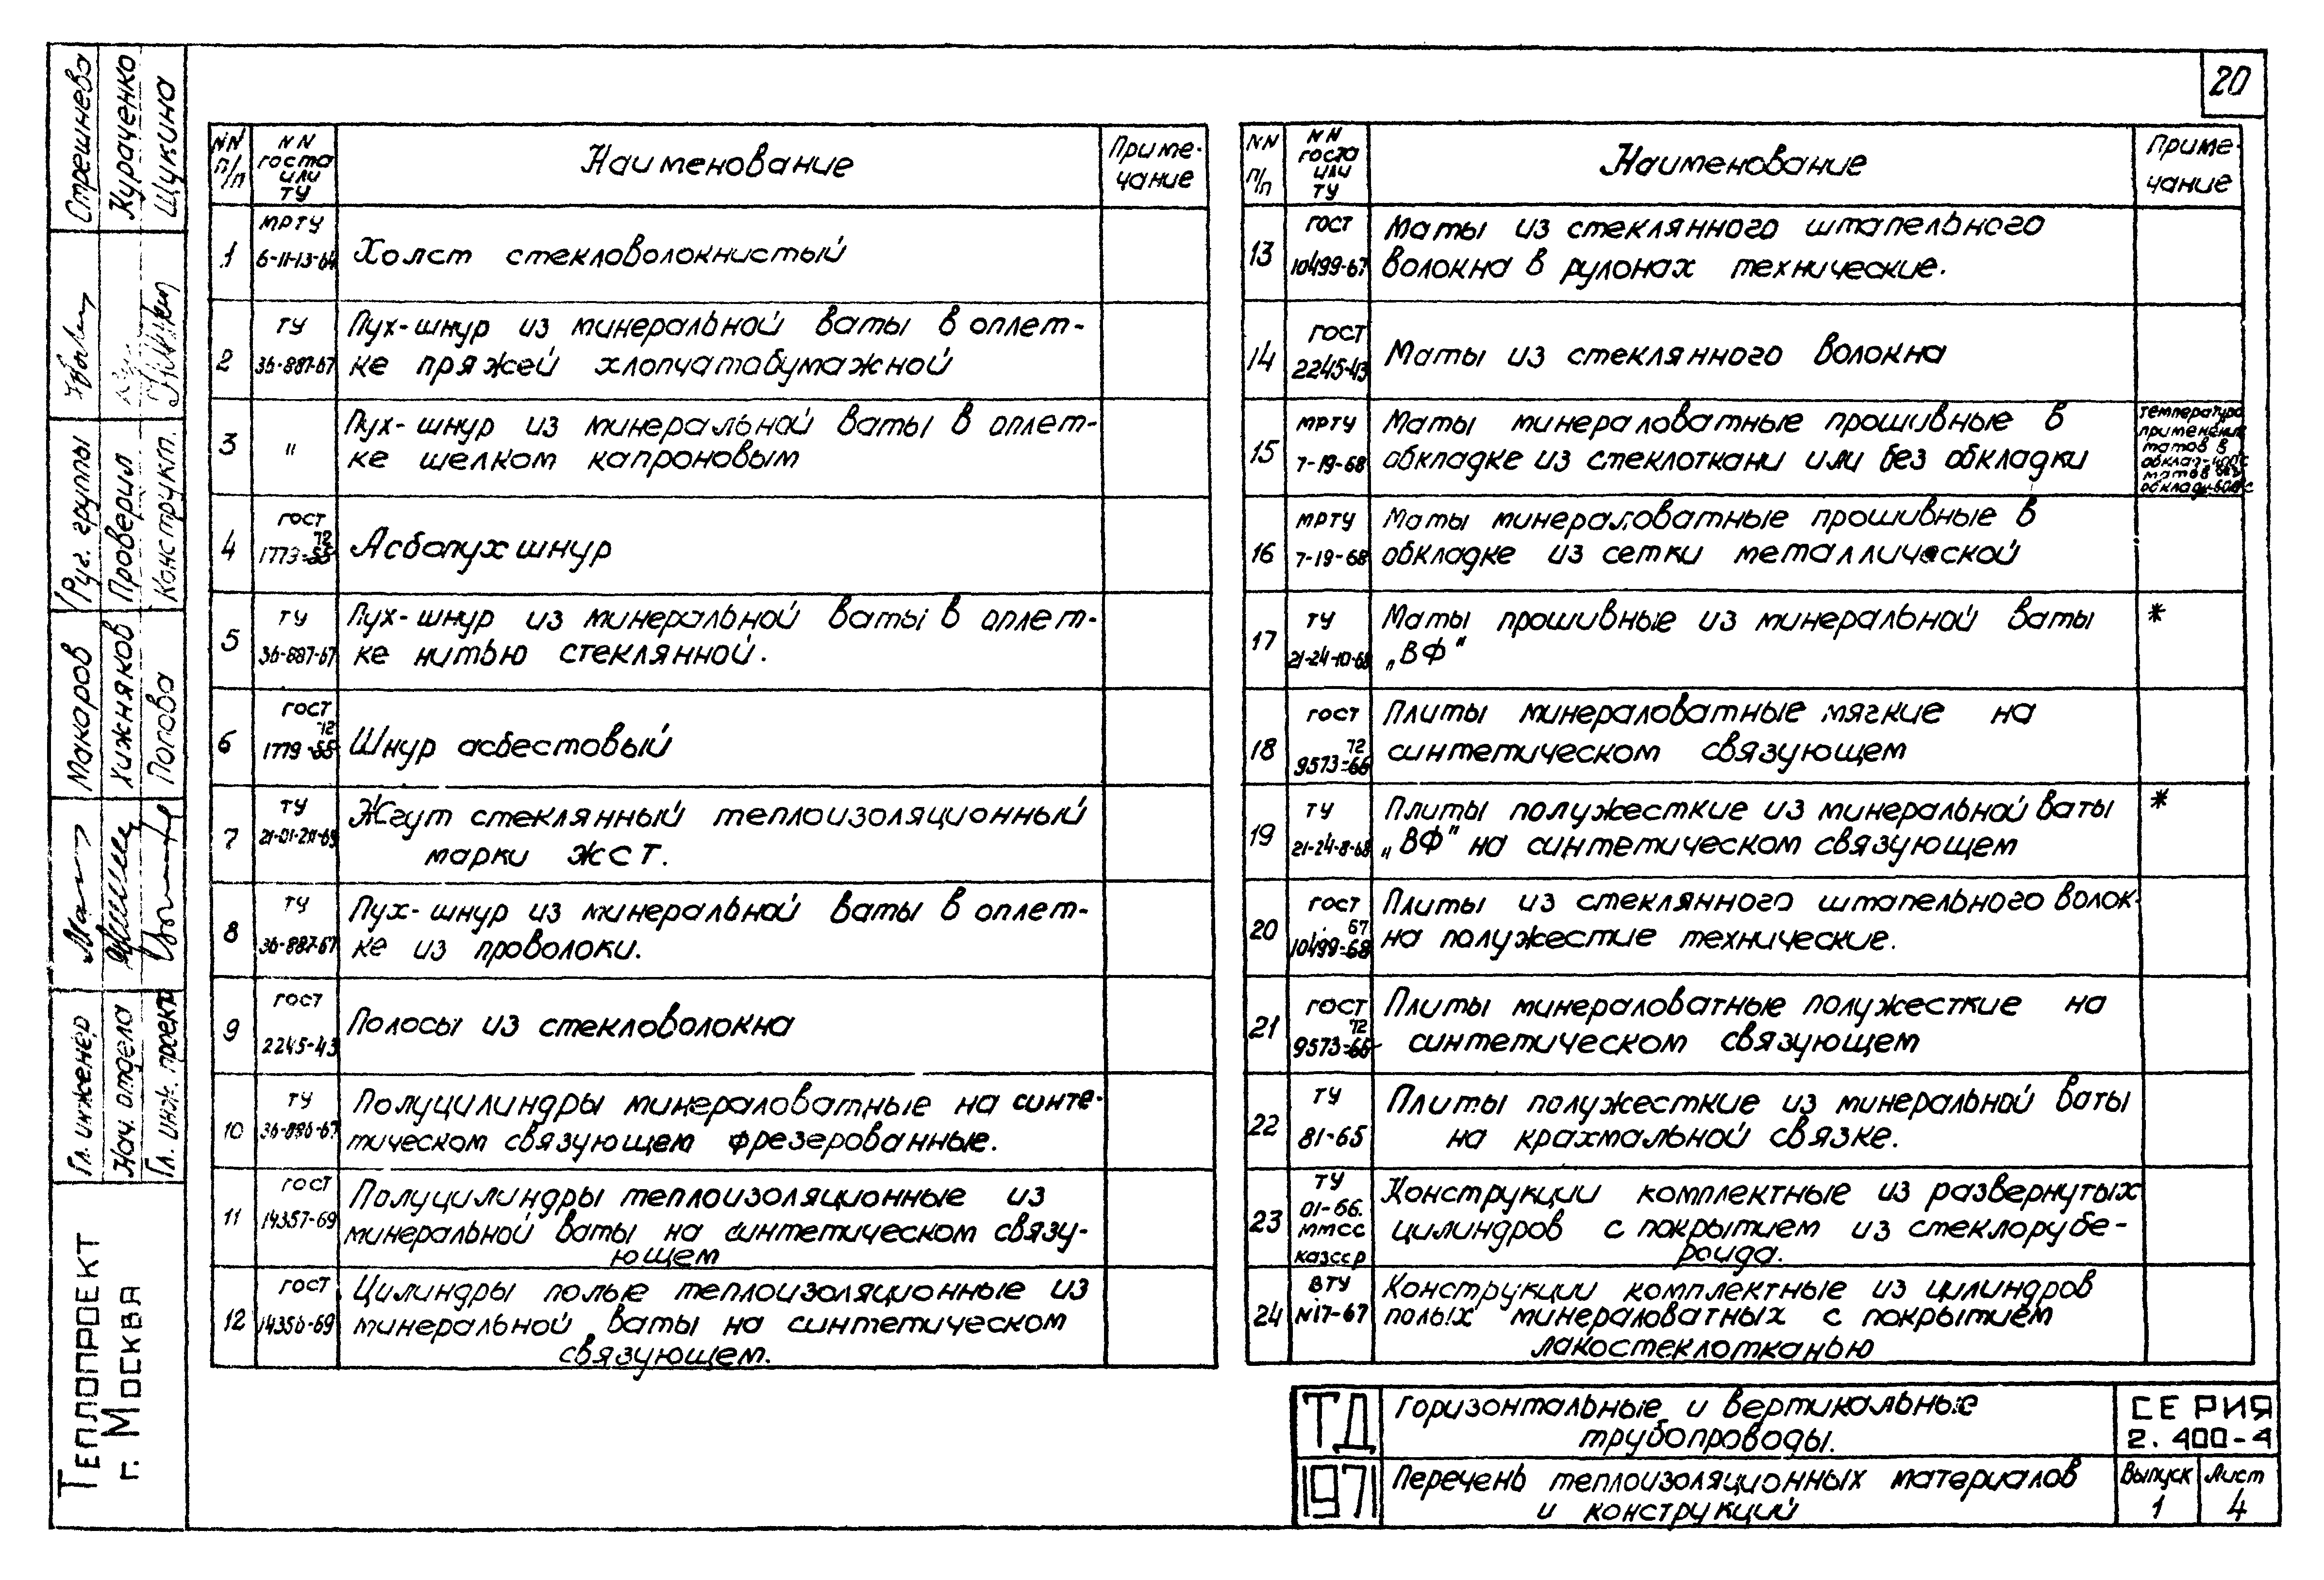 20
NN п/п
NN госта или ТУ
Наименование
Приме-
чание
1
МРТУ
6-11-13-64
Холст стекловолокнистый
2
ТУ
36-887-67
Пух-шнур из минеральной ваты в оплет-
ке пряжей хлопчатобумажной
3
"
Пух-шнур из минеральной ваты в оплет-
ке шелком капроновым
4
ГОСТ
72
1779-55
Асбопухшнур
5
ТУ
36-887-67
Пух-шнур из минеральной ваты в оплет-
ке нитью стеклянной.
6
ГОСТ
72
1779-55
Шнур асбестовый
7
ТУ
Жгут стеклянный теплоизоляционный
марки ЖСТ.
8
ТУ
36-887-67
Пух-шнур из минеральной ваты в оплет-
ке из проволоки.
9
ГОСТ
2245-43
Полосы из стекловолокна
10
ТУ
Полуцилиндры минераловатные на синте-
тическом связующем фрезерованные.
11
ГОСТ
14357-69
Полуцилиндры теплоизоляционные из
минеральной ваты на синтетическом связу-
ющем
12
ГОСТ
14356-69
Цилиндры полые теплоизоляционные из
минеральной ваты на синтетическом
связующем.
NN п/п
NN госта или ТУ
Наименование
Приме-
чание
13
ГОСТ
10499-67
Маты из стеклянного штапельного
волокна в рулонах технические.
14
ГОСТ
2245-43
Маты из стеклянного волокна
15
МРТУ
7-19-68
Маты минераловатные прошивные в
обкладке из стеклоткани или без обкладки
температура
применения
матов в
16
МРТУ
7-19-68
Маты минераловатные прошивные в
обкладке из сетки металлической
17
ТУ
21-24-10-68
Маты прошивные из минеральной ваты
„ВФ"
*
18
ГОСТ
72
9573-66
Плиты минераловатные мягкие на
синтетическом связующем
19
ТУ
21-24-8-68
Плиты полужесткие из минеральной ваты
„ВФ" на синтетическом связующем
*
20
ГОСТ
67
10499-68
Плиты из стеклянного штапельного волок-
на полужестие технические.
21
ГОСТ
72
9573-66
Плиты минераловатные полужесткие на
синтетическом связующем
22
ТУ
81-65
Плиты полужесткие из минеральной ваты
на крахмальной связке.
23
ТУ
01-66.
ММСС
КАЗССР
Конструкции комплектные из развернутых
цилиндров с покрытием из стеклорубе-
роида.
24
ВТУ
N17-67
Конструкции комплектные из цилиндров
полых минераловатных с покрытием
лакостеклотканью
ТД
1971
Горизонтальные и вертикальные
трубопроводы.
СЕРИЯ
2.400-4
Перечень теплоизоляционных материалов
и конструкций
Выпуск
1
Лист
4
Теплопроект
г. Москва
Гл. инженер
Нач. отдела
Гл. инж. проект
Макаров
Хижняков
Попова
Рук. группы
Проверил
Конструкт.
Стрешнева
Кураченко
Щукина